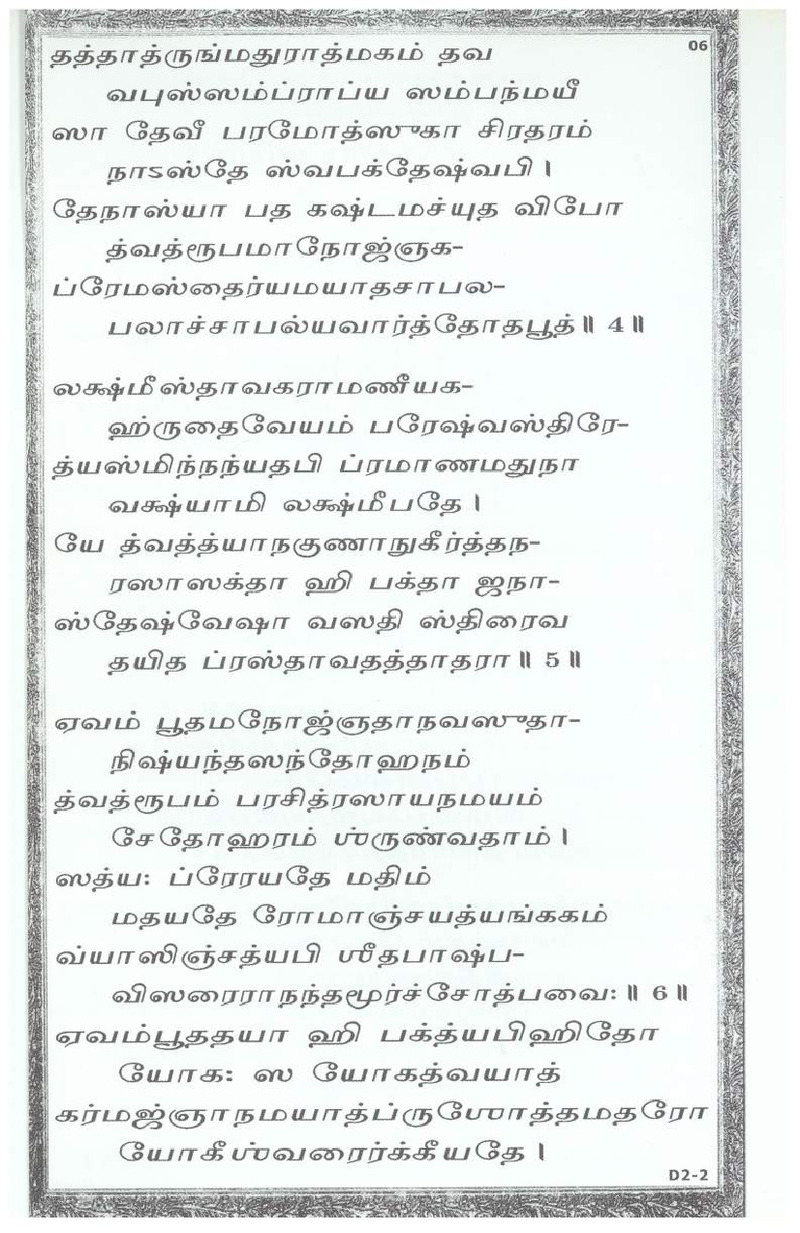 06
தத்தாத்ருங்மதுராத்மகம் தவ
வபுஸ்ஸம்ப்ராப்ய ஸம்பந்மயீ
ஸா தேவீ பரமோத்ஸுகா சிரதரம்
நாऽஸ்தே ஸ்வபக்தேஷ்வபி |
தேநாஸ்யா பத கஷ்டமச்யுத விபோ
த்வத்ரூபமாநோஜ்ஞக-
ப்ரேமஸ்தைர்யமயாதசாபல-
பலாச்சாபல்யவார்த்தோதபூத்॥ 4॥
லக்ஷ்மீஸ்தாவகராமணீயக-
ஹ்ருதைவேயம் பரேஷ்வஸ்திரே-
த்யஸ்மிந்நந்யதபி ப்ரமாணமதுநா
வக்ஷ்யாமி லக்ஷ்மீபதே |
யே த்வத்த்யாநகுணாநுகீர்த்தந-
ரஸாஸக்தா ஹி பக்தா ஜநா-
ஸ்தேஷ்வேஷா வஸதி ஸ்திரைவ
தயித ப்ரஸ்தாவதத்தாதரா॥ 5॥
ஏவம் பூதமநோஜ்ஞதாநவஸுதா-
நிஷ்யந்தஸந்தோஹநம்
த்வத்ரூபம் பரசித்ரஸாயநமயம்
சேதோஹரம் ஶ்ருண்வதாம் |
ஸத்ய: ப்ரேரயதே மதிம்
மதயதே ரோமாஞ்சயத்யங்ககம்
வ்யாஸிஞ்சத்யபி ஶீதபாஷ்ப-
விஸரைராநந்தமூர்ச்சோத்பவை:॥ 6॥
ஏவம்பூததயா ஹி பக்த்யபிஹிதோ
யோக: ஸ யோகத்வயாத்
கர்மஜ்ஞாநமயாத்ப்ருஶோத்தமதரோ
யோகீஶ்வரைர்க்கீயதே |
D2-2